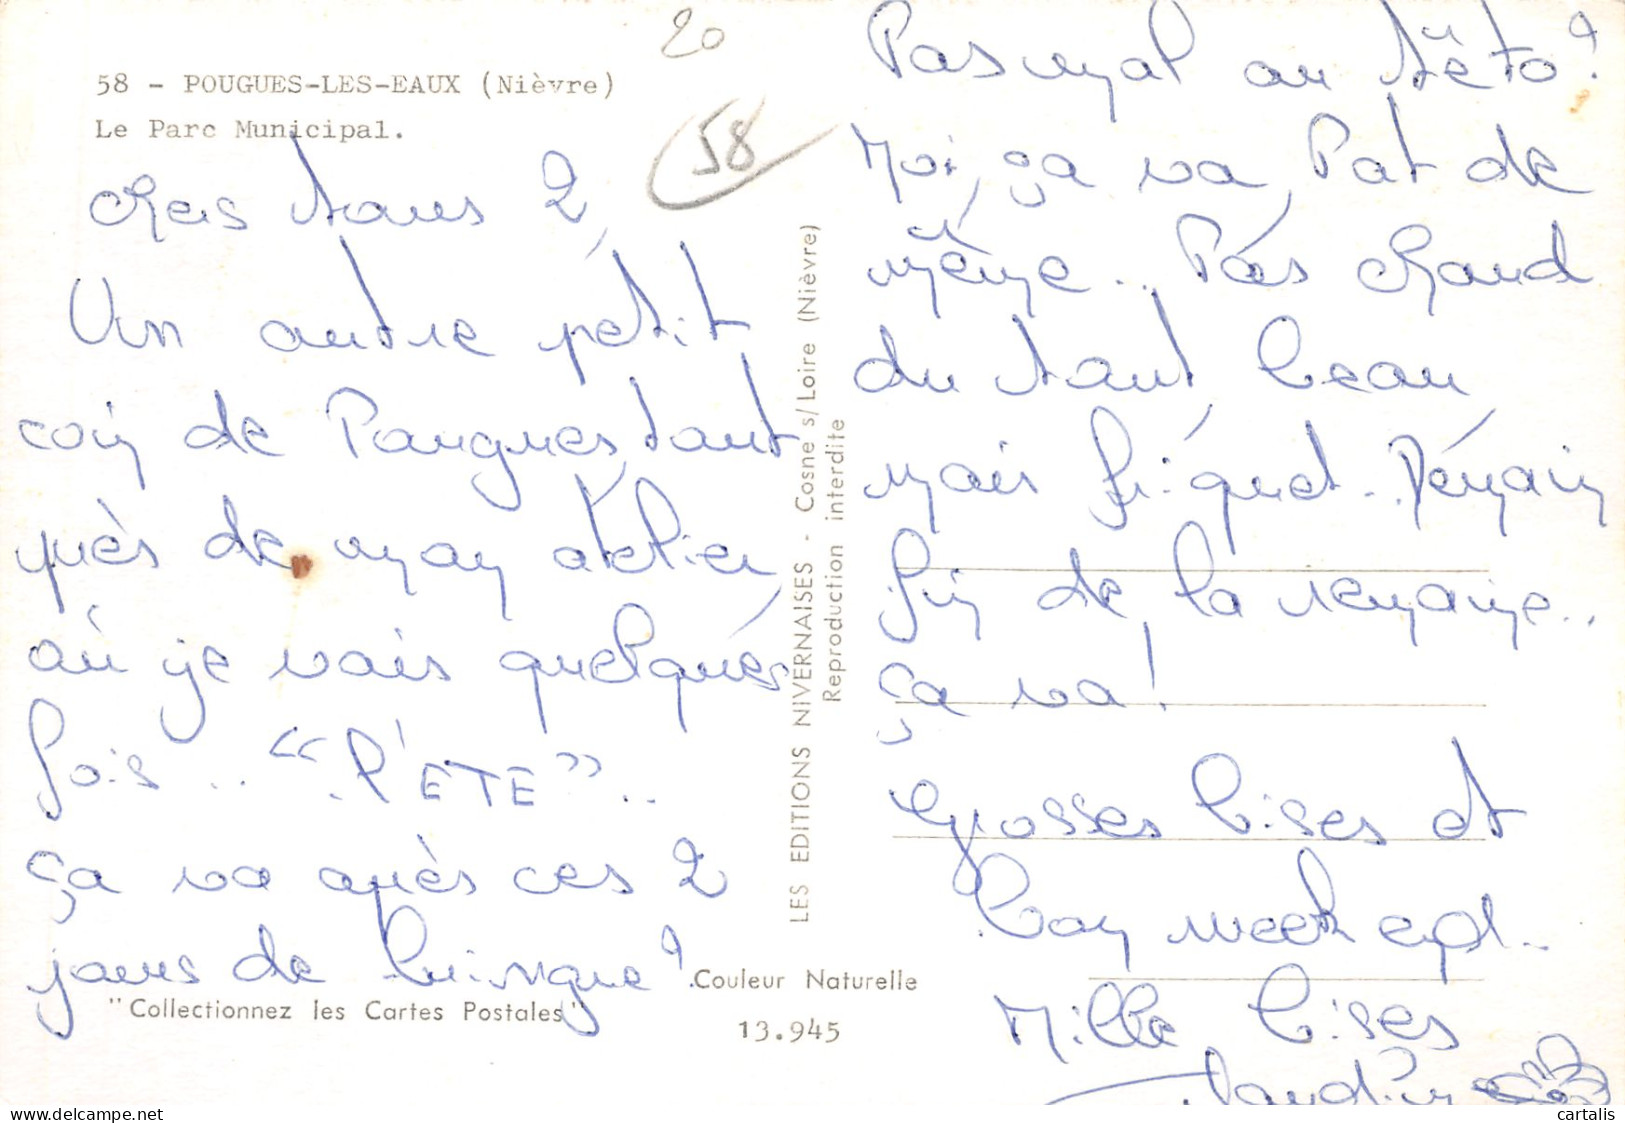 20
58 - POUGUES-LES-EAUX (Nièvre)
Le Parc Municipal.
58
chers tous 2,
Un autre pétit
coin de Pougues tout
près de mon atélier
où je vais quelques
fois .. "l'ETE" ..
ça va après ces 2
jours de bringue?
"Collectionnez les Cartes Postales"
LES EDITIONS NIVERNAISES - Cosne s/Loire (Nièvre)
Reproduction interdite
Couleur Naturelle
13.945
Pas mal au
Moi, ça va, Pat de
même .. Pas chaud
du tout, beau
mais frisquet .. Demain
fin de la semaine ..
ça va!
Grosses bises et
bon week end ..
Mille bises
cartalis